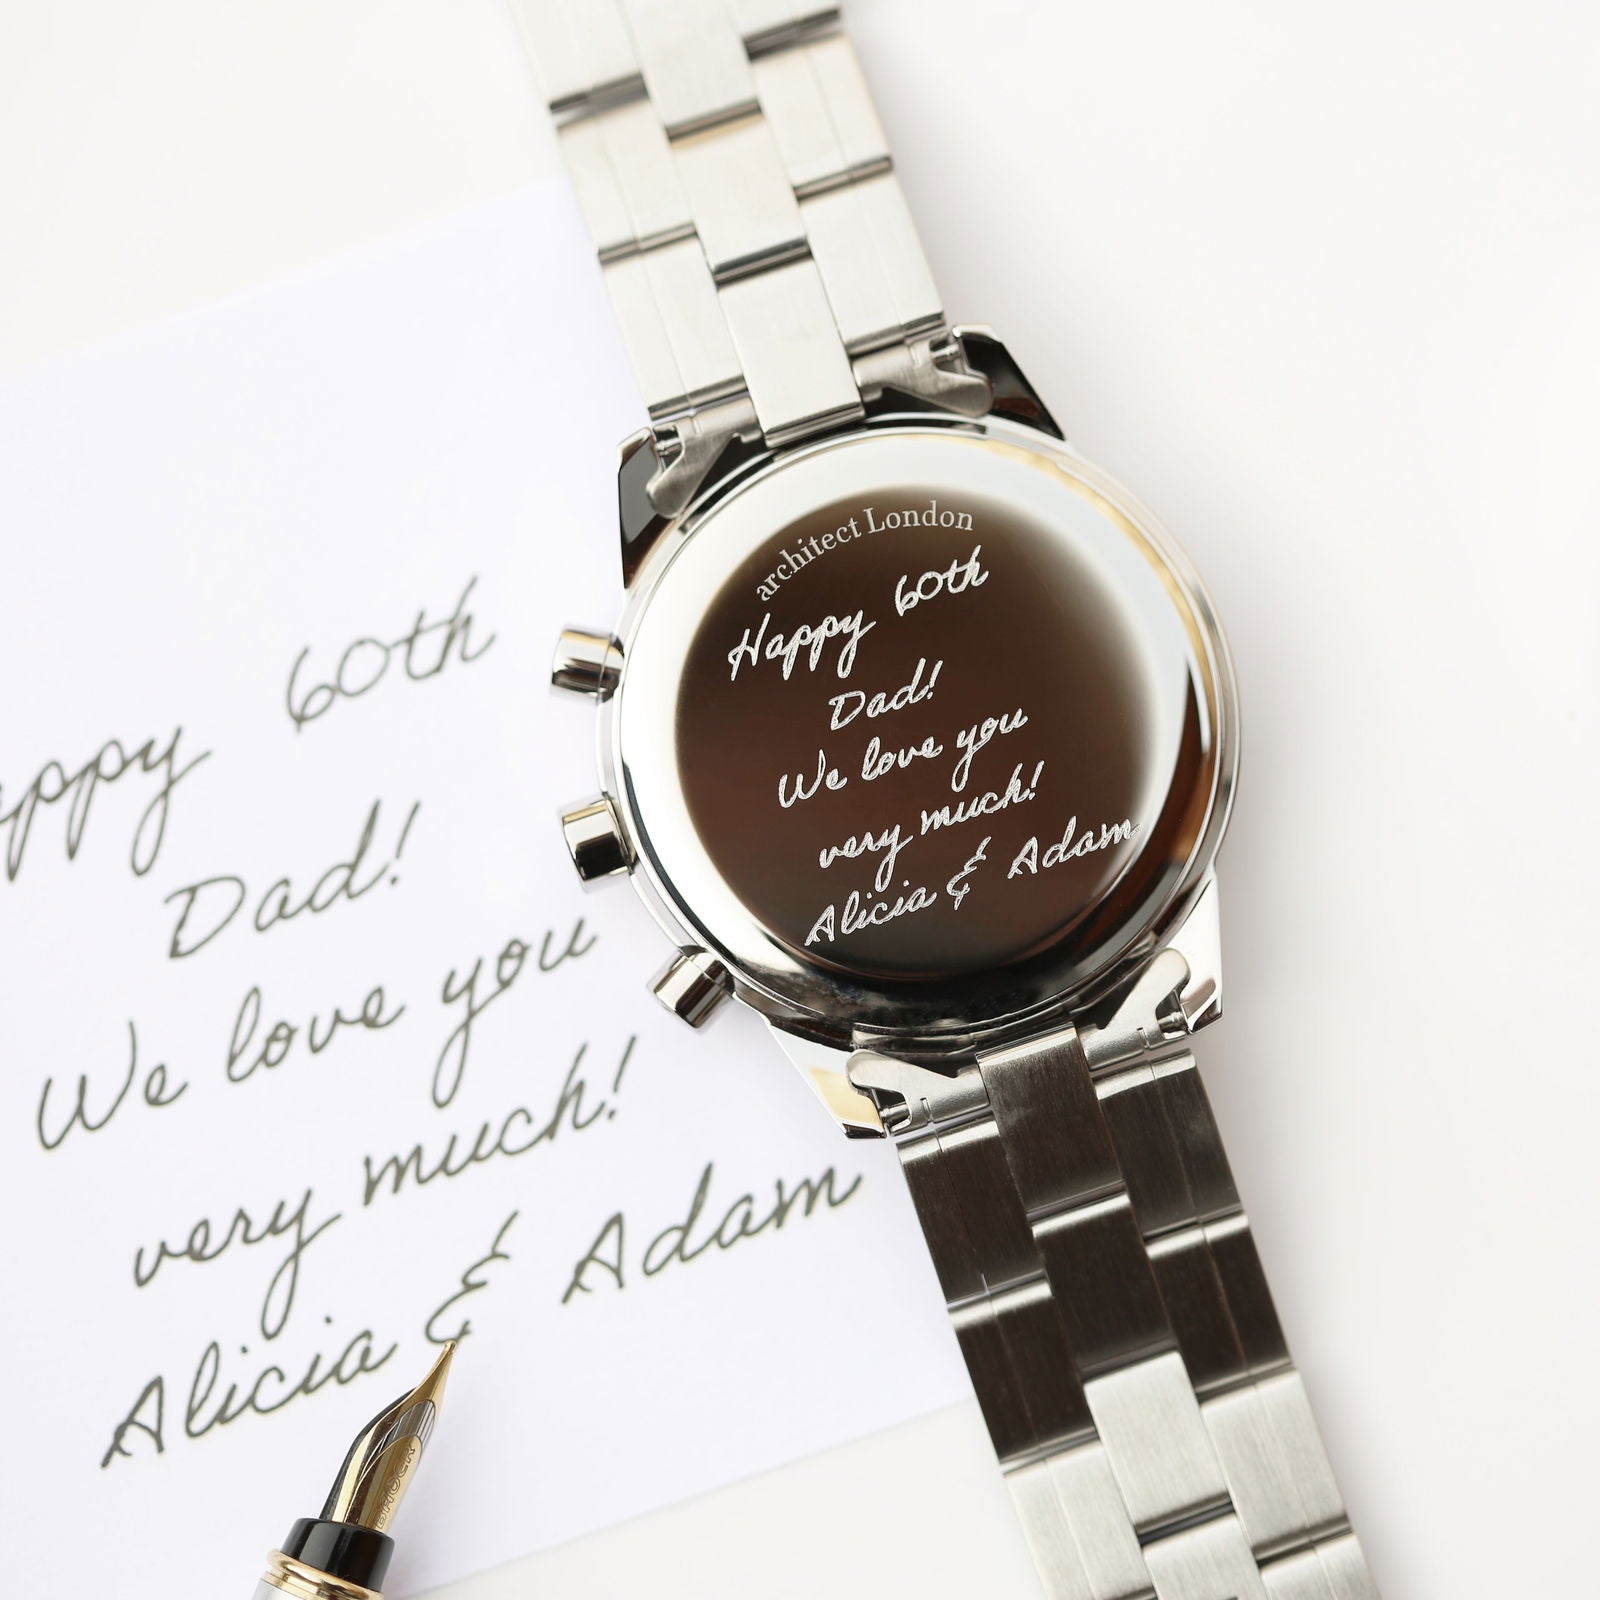 architect London
Happy 60th
Dad!
We love you
very much!
Alicia & Adam
appy 60th
Dad!
We love you
very much!
Alicia & Adam
BAOER